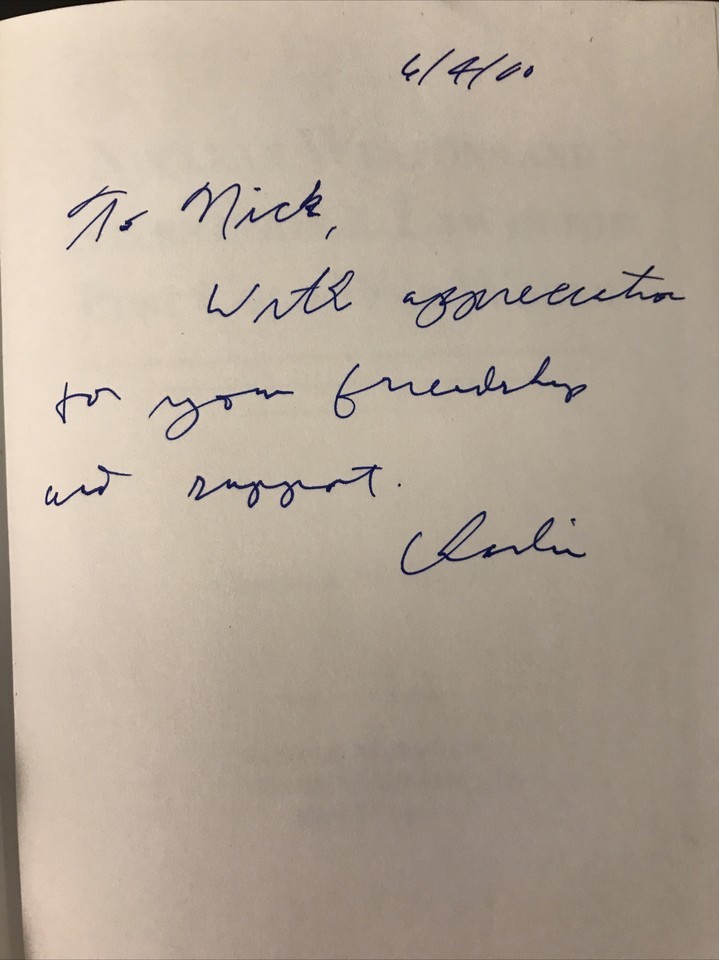 6/4/00
To Nick,
With appreciation
for your friendship
and support.
Charlie